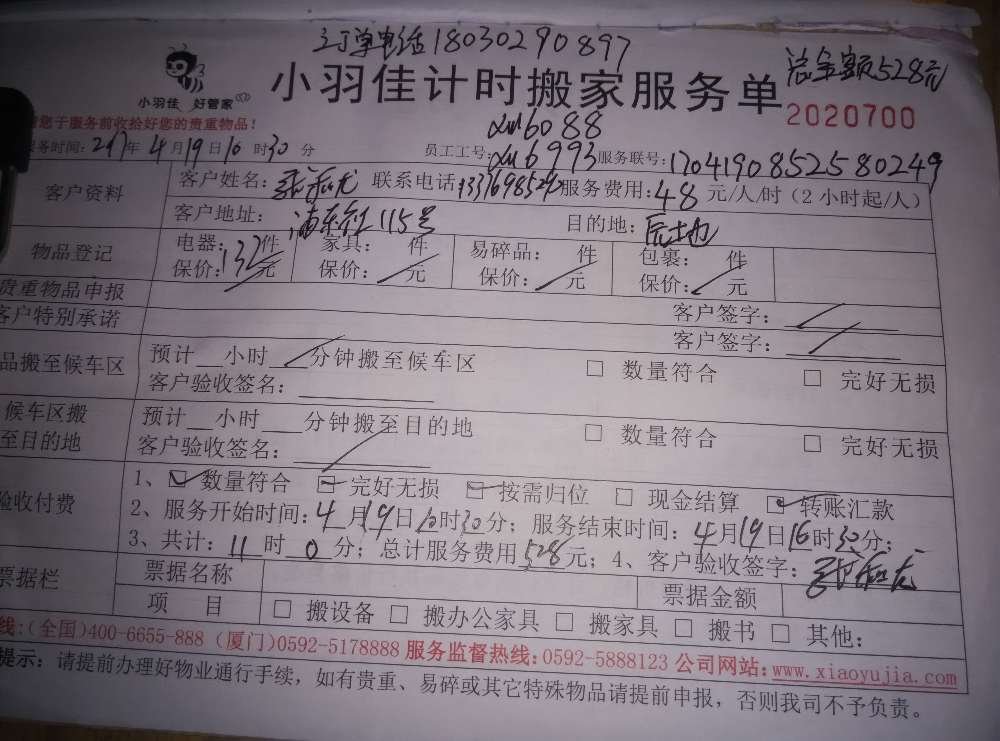 订单电话18030290897
总金额528元
小羽佳 好管家
小羽佳计时搬家服务单
2020700
您于服务前收拾好您的贵重物品!
xm6088
务时间: 2017年4月19日10时30分 员工工号: xm6993 服务联号: 170419085258 0249
客户资料 客户姓名: 联系电话: 服务费用: 48 元/人/时 (2小时起/人)
客户地址: 浦东红115号 目的地:
物品登记 电器: 件 家具: 件 易碎品: 件 包裹: 件
保价: 元 保价: 元 保价: 元 保价: 元
贵重物品申报 客户签字:
客户特别承诺 客户签字:
品搬至候车区 预计 小时 分钟搬至候车区 □ 数量符合 □ 完好无损
客户验收签名:
候车区搬至目的地 预计 小时 分钟搬至目的地 □ 数量符合 □ 完好无损
客户验收签名:
验收付费 1、☑ 数量符合 ☑ 完好无损 ☑ 按需归位 □ 现金结算 ☑ 转账汇款
2、服务开始时间: 4月19日10时30分; 服务结束时间: 4月19日16时30分;
3、共计: 11时0分; 总计服务费用528元; 4、客户验收签字:
票据栏 票据名称 票据金额
项 目 □ 搬设备 □ 搬办公家具 □ 搬家具 □ 搬书 □ 其他:
线:(全国)400-6655-888 (厦门)0592-5178888 服务监督热线:0592-5888123 公司网站:www.xiaoyujia.com
提示: 请提前办理好物业通行手续, 如有贵重、易碎或其它特殊物品请提前申报, 否则我司不予负责。